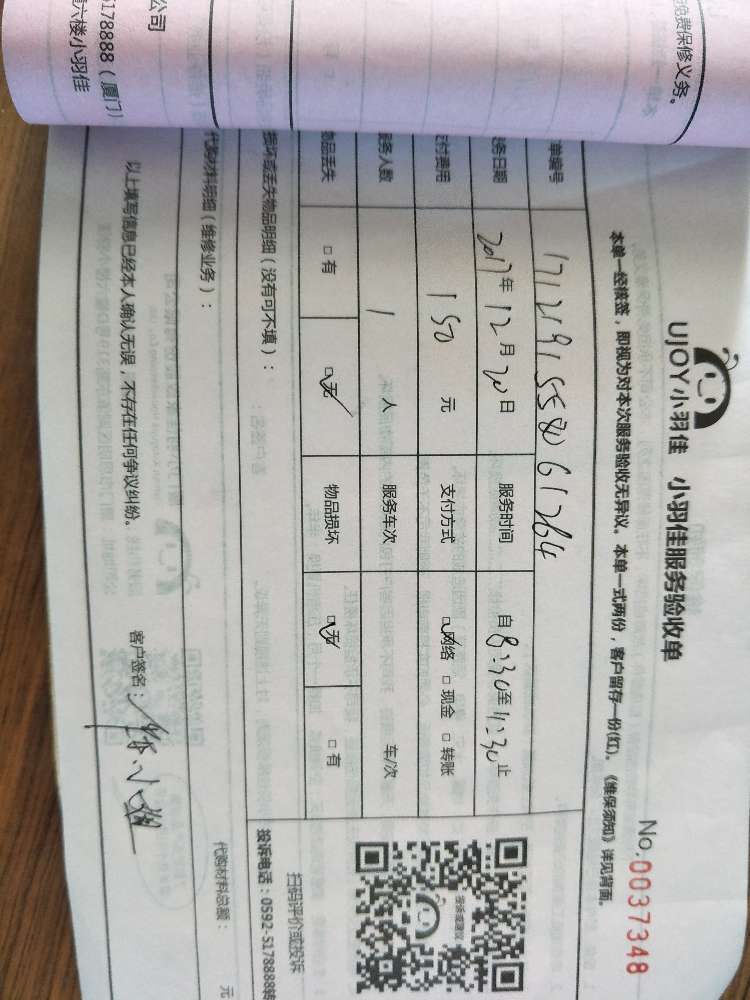 免费保修义务。
公司
5178888（厦门）
六楼小羽佳
UJOY小羽佳 小羽佳服务验收单
No.0037348
本单一经核签，即视为对本次服务验收无异议。本单一式两份，客户留存一份(红)。《维保须知》详见背面。
单编号 1712191558061264
务日期 2017年12月20日 服务时间 自8:30至11:30止
支付费用 150元 支付方式 网络 □现金 □转账
服务人数 1人 服务车次 车/次
物品丢失 □有 无 物品损坏 无 □有
损坏或丢失物品明细（没有可不填）：
扫码评价或投诉
投诉电话：0592-5178888转
代购材料明细（维修业务）： 代购材料总额： 元
以上填写信息已经本人确认无误，不存在任何争议纠纷。 客户签名：